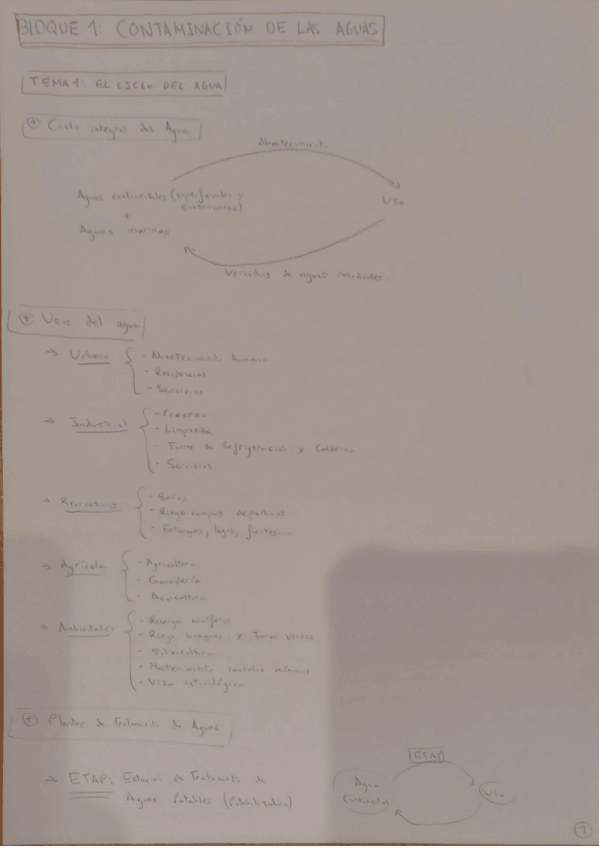 BLOQUE 1: CONTAMINACIÓN DE LAS AGUAS
TEMA 1: EL CICLO DEL AGUA
Ciclo integral del Agua
Abastecimiento
Aguas continentales (superficiales y
subterráneas)
+
Aguas marinas
Uso
Vertidos de aguas residuales.
Usos del agua
→ Urbano
- Abastecimiento humano
- Residencias
- Servicios
→ Industrial
- Proceso
- Limpieza
- Torres de Refrigeración y Calderas
- Servicios
→ Recreativos
- Baños
- Riego campos deportivos
- Estanques, lagos, fuentes...
→ Agrícola
- Agricultura
- Ganadería
- Acuicultura
→ Ambientales
- Recarga acuíferos
- Riego bosques y zonas verdes
- Silvicultura
- Mantenimiento caudales mínimos
- Vida
Plantas de Tratamiento de Aguas
→ ETAP: Estación de Tratamiento de
Aguas Potables (Potabilizadora)
ETAP
Agua
Uso
1